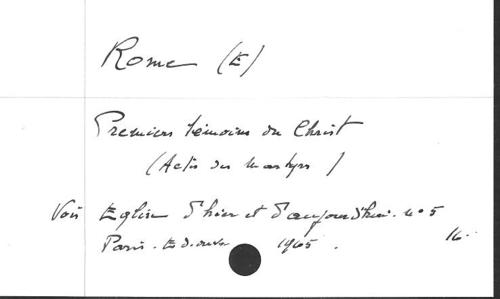 Rome (E)
Premiers témoins du Christ
(Actes des Martyrs)
Voir Eglise d'hier et d'aujourd'hui. n° 5
Paris. Ed. ouvr 1965. 16.